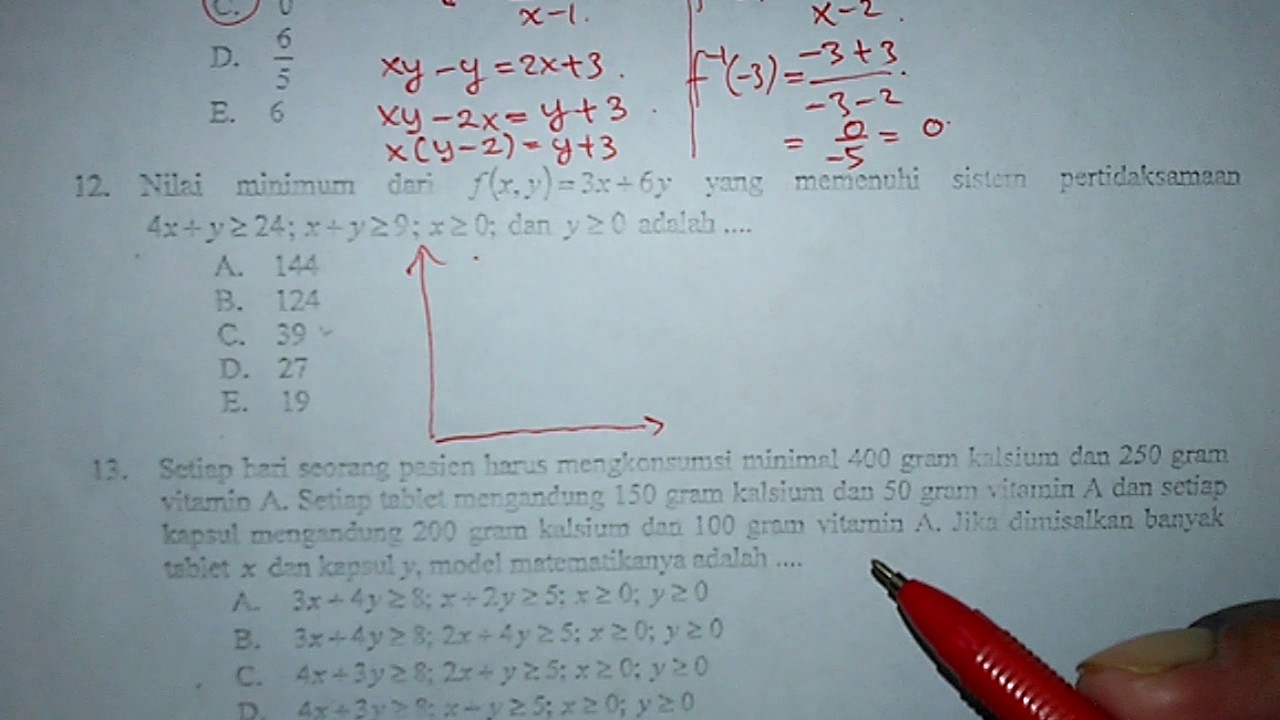 C. 0
D. 6/5
E. 6
x-1.
xy-y=2x+3.
xy-2x=y+3.
x(y-2)=y+3
x-2.
f⁻¹(-3)=(-3+3)/(-3-2).
= 0/-5 = 0.
12. Nilai minimum dari f(x,y)=3x+6y yang memenuhi sistem pertidaksamaan
4x+y≥24; x+y≥9; x≥0; dan y≥0 adalah ....
A. 144
B. 124
C. 39
D. 27
E. 19
13. Setiap hari seorang pasien harus mengkonsumsi minimal 400 gram kalsium dan 250 gram
vitamin A. Setiap tablet mengandung 150 gram kalsium dan 50 gram vitamin A dan setiap
kapsul mengandung 200 gram kalsium dan 100 gram vitamin A. Jika dimisalkan banyak
tablet x dan kapsul y, model matematikanya adalah ....
A. 3x+4y≥8; x+2y≥5; x≥0; y≥0
B. 3x+4y≥8; 2x+4y≥5; x≥0; y≥0
C. 4x+3y≥8; 2x+y≥5; x≥0; y≥0
D. 4x+3y≥8; x-y≥5; x≥0; y≥0